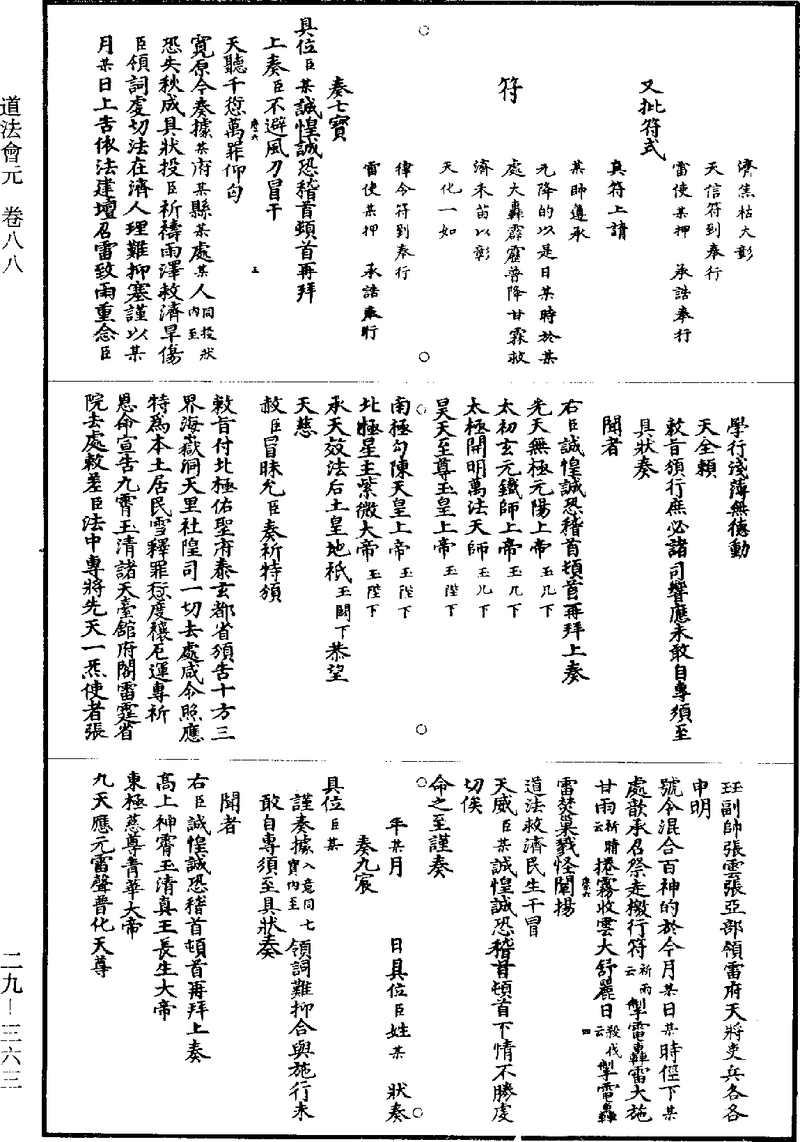 道法會元　卷八八
二九－三六三
濟焦枯大彰
天信符到奉行
雷使某押　承誥奉行
又批符式
真符上請
某師遵承
元降的以是日某時於某
處大轟霹靂普降甘霖救
符
濟禾苗以彰
天化一如
律令符到奉行
雷使某押　承誥奉行
奏七寶
具位臣某誠惶誠恐稽首頓首再拜
上奏臣不避風刀冒干
天聽千愆萬罪仰匄
寬原今奏據某府某縣某處某人同投狀內至
恐失秋成具狀投臣祈禱雨澤救濟旱傷
臣領詞虔切法在濟人理難抑塞謹以某
月某日上吉依法建壇召雷致雨重念臣
學行淺薄無德動
天全賴
敕旨頒行庶必諸司響應未敢自專須至
具狀奏
聞者
右臣誠惶誠恐稽首頓首再拜上奏
先天無極元陽上帝玉几下
太初玄元鐵師上帝玉几下
太極開明萬法天師玉几下
昊天至尊玉皇上帝玉陛下
南極勾陳天皇上帝玉陛下
北極星主紫微大帝玉陛下
承天效法后土皇地祇玉闕下恭望
天慈
赦臣冒昧允臣奏祈特頒
敕旨付北極佑聖府泰玄都省頒告十方三
界海嶽洞天里社隍司一切去處咸令照應
特為本土居民雪釋罪愆度禳厄運專祈
恩命宣告九霄玉清諸天臺館府閣雷霆省
院去處敕差臣法中專將先天一炁使者張
玨副帥張雲張亞部領雷府天將吏兵各各
申明
號令混合百神的於今月某日某時徑下某
處歆承召祭走檄行符祈雨云掣電轟雷大施
甘雨祈晴云捲霧收雲大舒麗日殺伐云掣電轟
雷焚巢戮怪闡揚
道法救濟民生干冒
天威臣某誠惶誠恐稽首頓首下情不勝虔
切俟
命之至謹奏
年某月　　日具位臣姓某　狀奏
奏九宸
具位臣某
謹奏據入意同七寶內至領詞難抑合與施行未
敢自專須至具狀奏
聞者
右臣誠惶誠恐稽首頓首再拜上奏
高上神霄玉清真王長生大帝
東極慈尊青華大帝
九天應元雷聲普化天尊